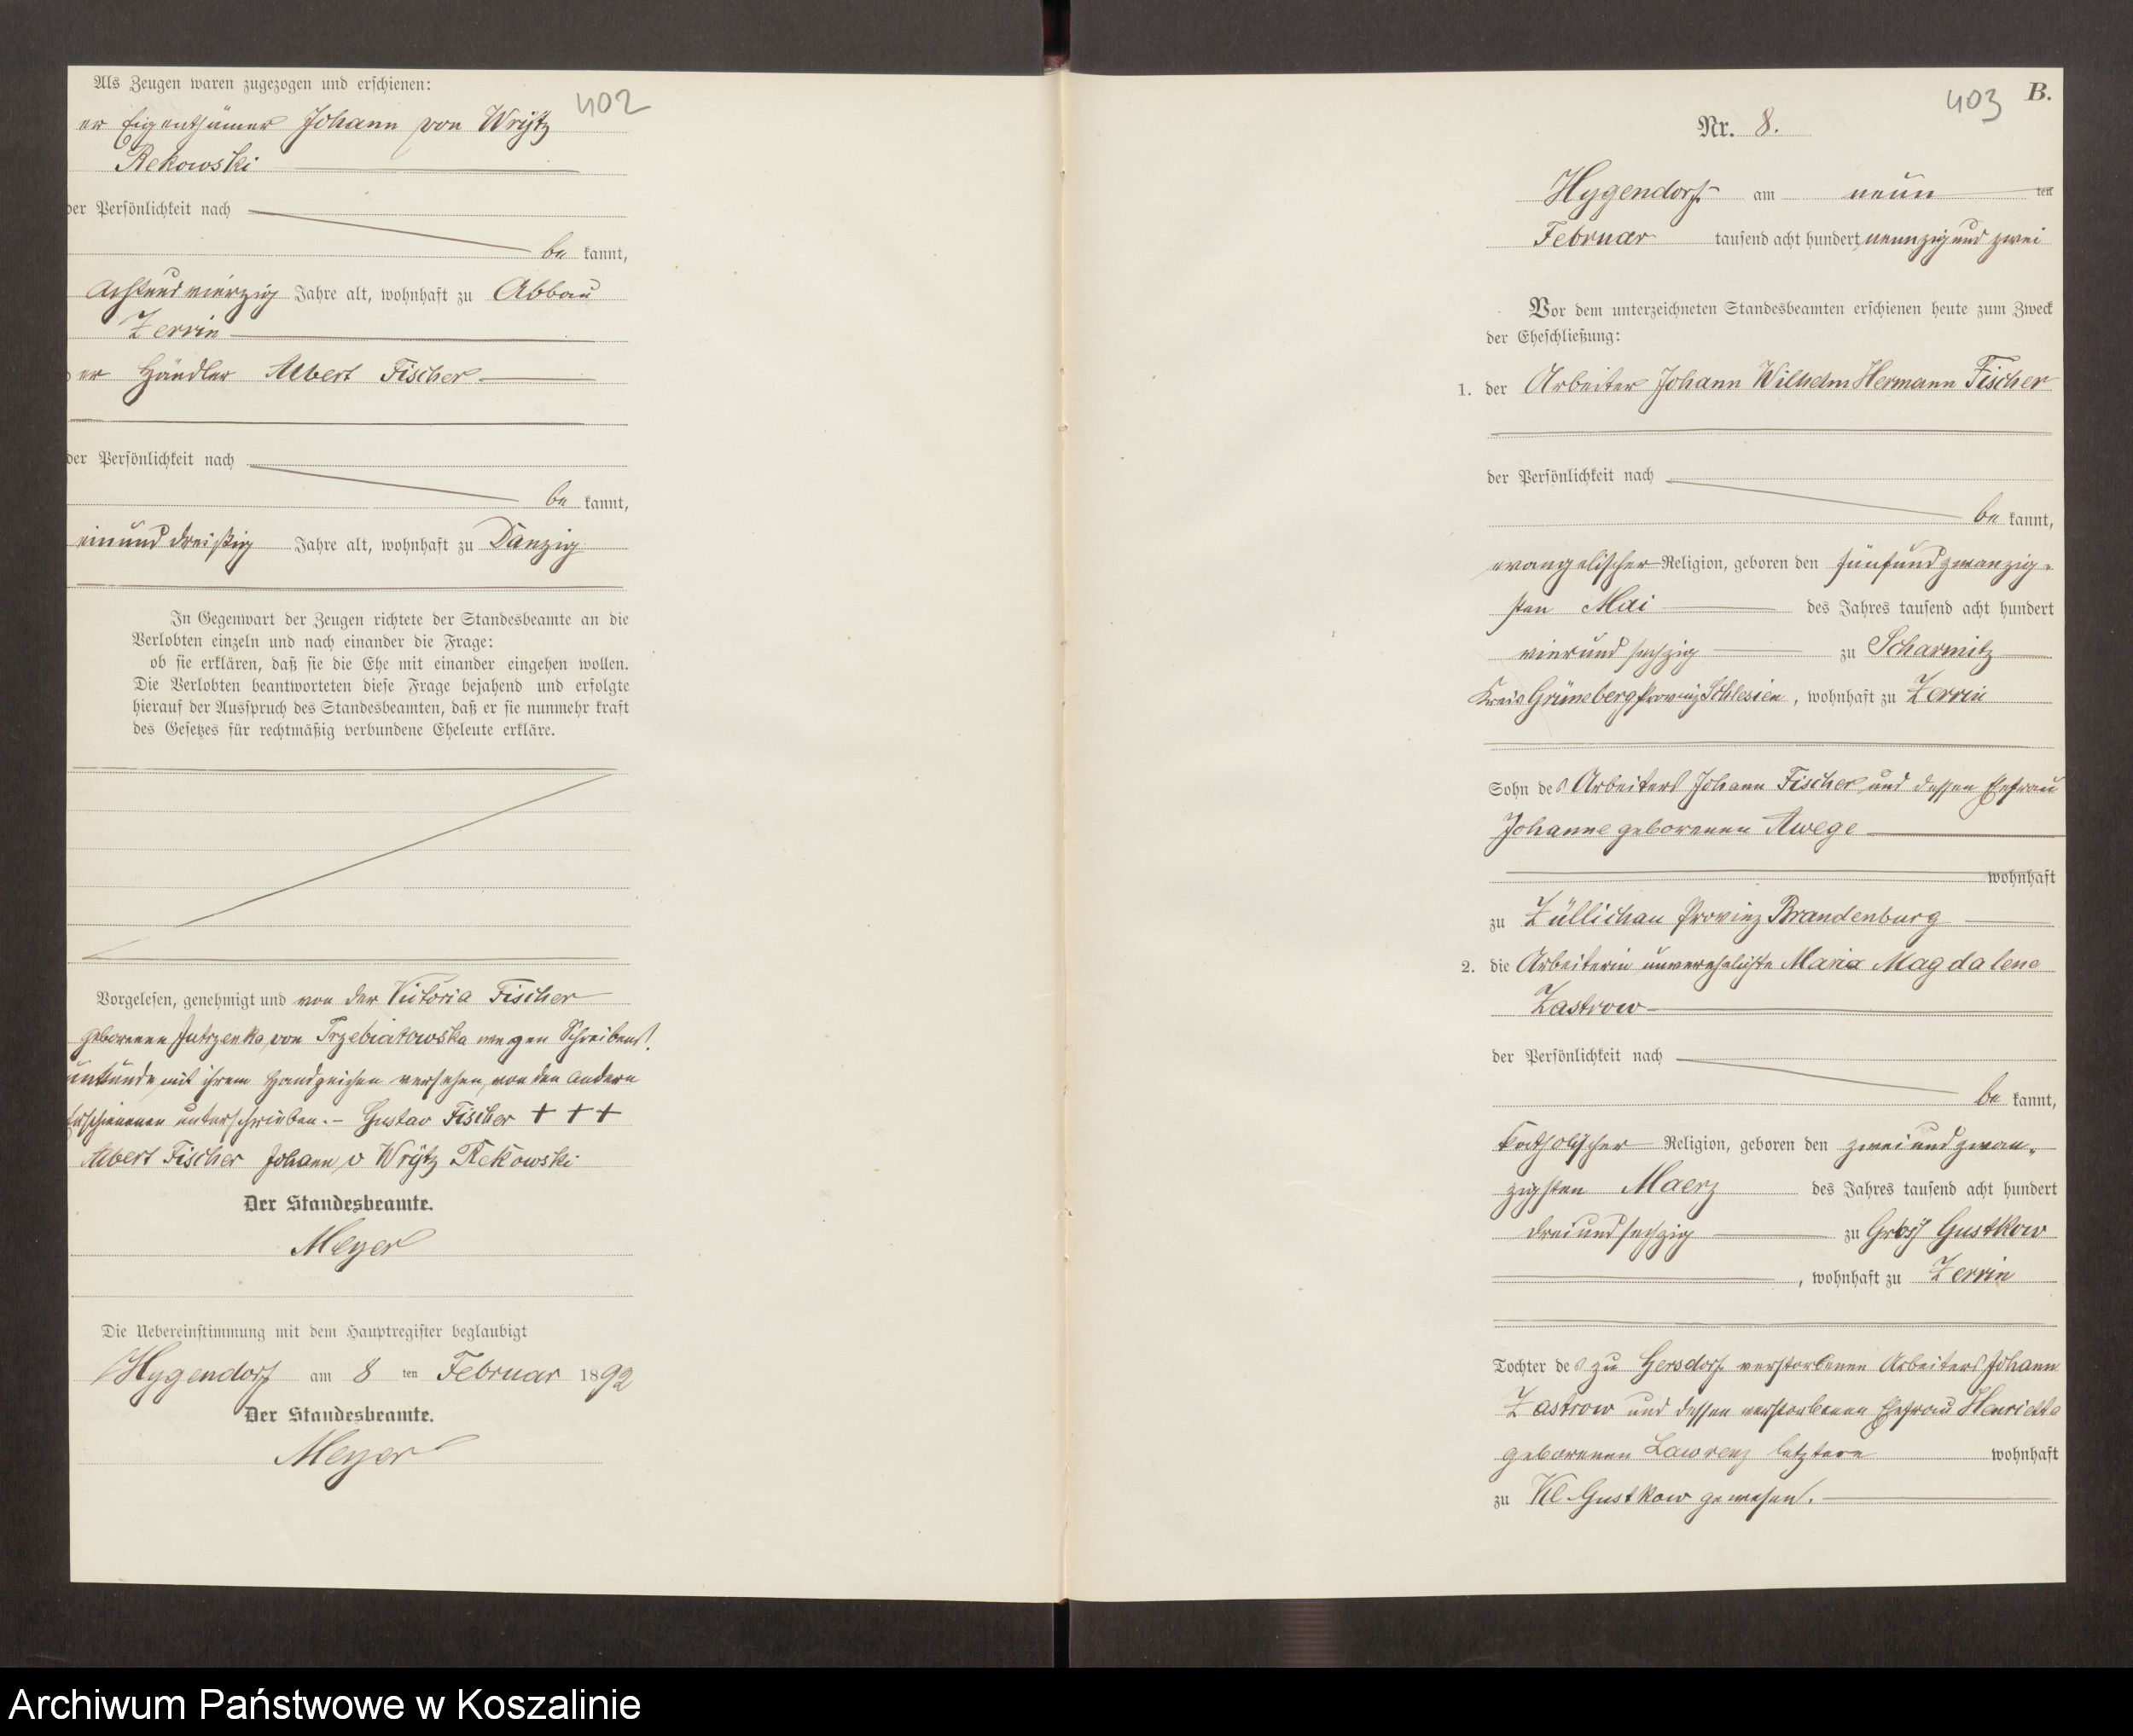 Als Zeugen waren zugezogen und erschienen:
402
er Eigenthümer Johann von Wrÿtz
Rekowski
der Persönlichkeit nach
be kannt,
achtundvierzig Jahre alt, wohnhaft zu Abbau
Zerrin
er Händler Albert Fischer
der Persönlichkeit nach
be kannt,
einunddreißig Jahre alt, wohnhaft zu Danzig
In Gegenwart der Zeugen richtete der Standesbeamte an die
Verlobten einzeln und nach einander die Frage:
ob sie erklären, daß sie die Ehe mit einander eingehen wollen.
Die Verlobten beantworteten diese Frage bejahend und erfolgte
hierauf der Ausspruch des Standesbeamten, daß er sie nunmehr kraft
des Gesetzes für rechtmäßig verbundene Eheleute erkläre.
Vorgelesen, genehmigt und von der Victoria Fischer
geborenen Jutrzenka von Trzebiatowska wegen Schreibens
unkunde mit ihrem Handzeichen versehen, von den andern
Erschienenen unterschrieben.- Gustav Fischer + + +
Albert Fischer Johann v Wrÿtz Rekowski
Der Standesbeamte.
Meyer
Die Uebereinstimmung mit dem Hauptregister beglaubigt
Hygendorf am 8 ten Februar 1892
Der Standesbeamte.
Meyer
B.
403
Nr. 8.
Hygendorf am neun ten
Februar tausend acht hundert neunzig und zwei
Vor dem unterzeichneten Standesbeamten erschienen heute zum Zweck
der Eheschließung:
1. der Arbeiter Johann Wilhelm Hermann Fischer
der Persönlichkeit nach
be kannt,
evangelischer Religion, geboren den fünfundzwanzig-
sten Mai des Jahres tausend acht hundert
vierundsechzig zu Scharmitz
Kreis Grüneberg Provinz Schlesien, wohnhaft zu Zerrin
Sohn des Arbeiters Johann Fischer und dessen Ehefrau
Johanne geborenen Awege
wohnhaft
zu Züllichau Provinz Brandenburg
2. die Arbeiterin unverehelichte Maria Magdalene
Zastrow
der Persönlichkeit nach
be kannt,
katholischer Religion, geboren den zweiundzwan-
zigsten Maerz des Jahres tausend acht hundert
dreiundsechzig zu Groß Gustkow
, wohnhaft zu Zerrin
Tochter des zu Gersdorf verstorbenen Arbeiters Johann
Zastrow und dessen verstorbenen Ehefrau Henriette
geborenen Lawrenz letztere wohnhaft
zu Kl. Gustkow gewesen.
Archiwum Państwowe w Koszalinie